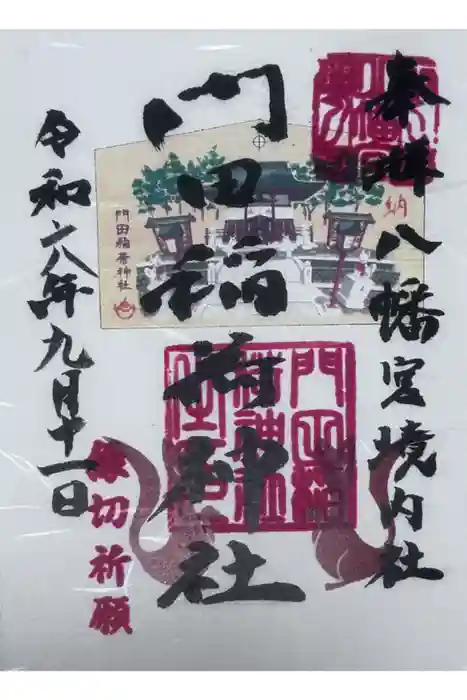 奉拝
八幡宮境内社
門田稲荷神社
令和六年九月十一日
縁切祈願
門田稲荷神社
納